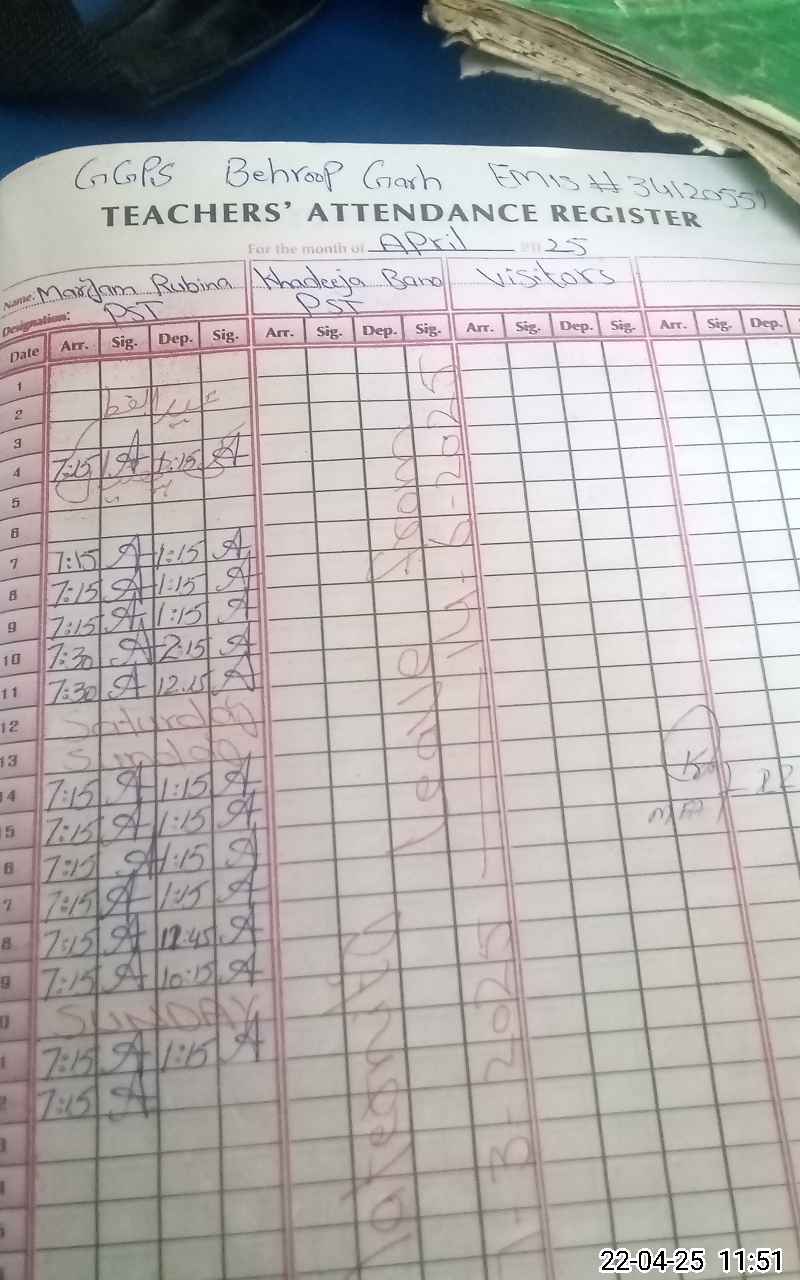 GGPS Behroop Garh EMIS # 34120551
TEACHERS' ATTENDANCE REGISTER
For the month of April 2025
Name: Marjam Rubina Khadeeja Bano Visitors
Designation: PST PST
Date Arr. Sig. Dep. Sig. Arr. Sig. Dep. Sig. Arr. Sig. Dep. Sig. Arr. Sig. Dep.
1
2
3
4 7:15 A 1:15 A
5
6
7 7:15 A 1:15 A
8 7:15 A 1:15 A
9 7:15 A 1:15 A
10 7:30 A 2:15 A
11 7:30 A 12:15 A
12 Saturday
13 Sunday
14 7:15 A 1:15 A
5 7:15 A 1:15 A
6 7:15 A 1:15 A
7 7:15 A 1:15 A
8 7:15 A 12:45 A
9 7:15 A 10:15 A
0 SUNDAY
1 7:15 A 1:15 A
2 7:15 A
3
4
5
Maternity Leave from
-3-2025 14-6-2025
22-04-25 11:51